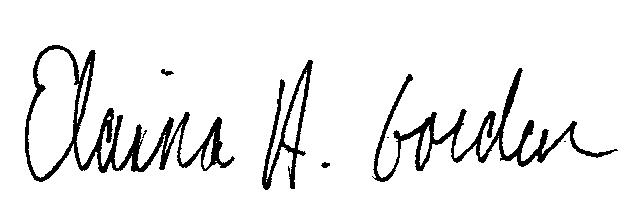 Elaina H. Gorden